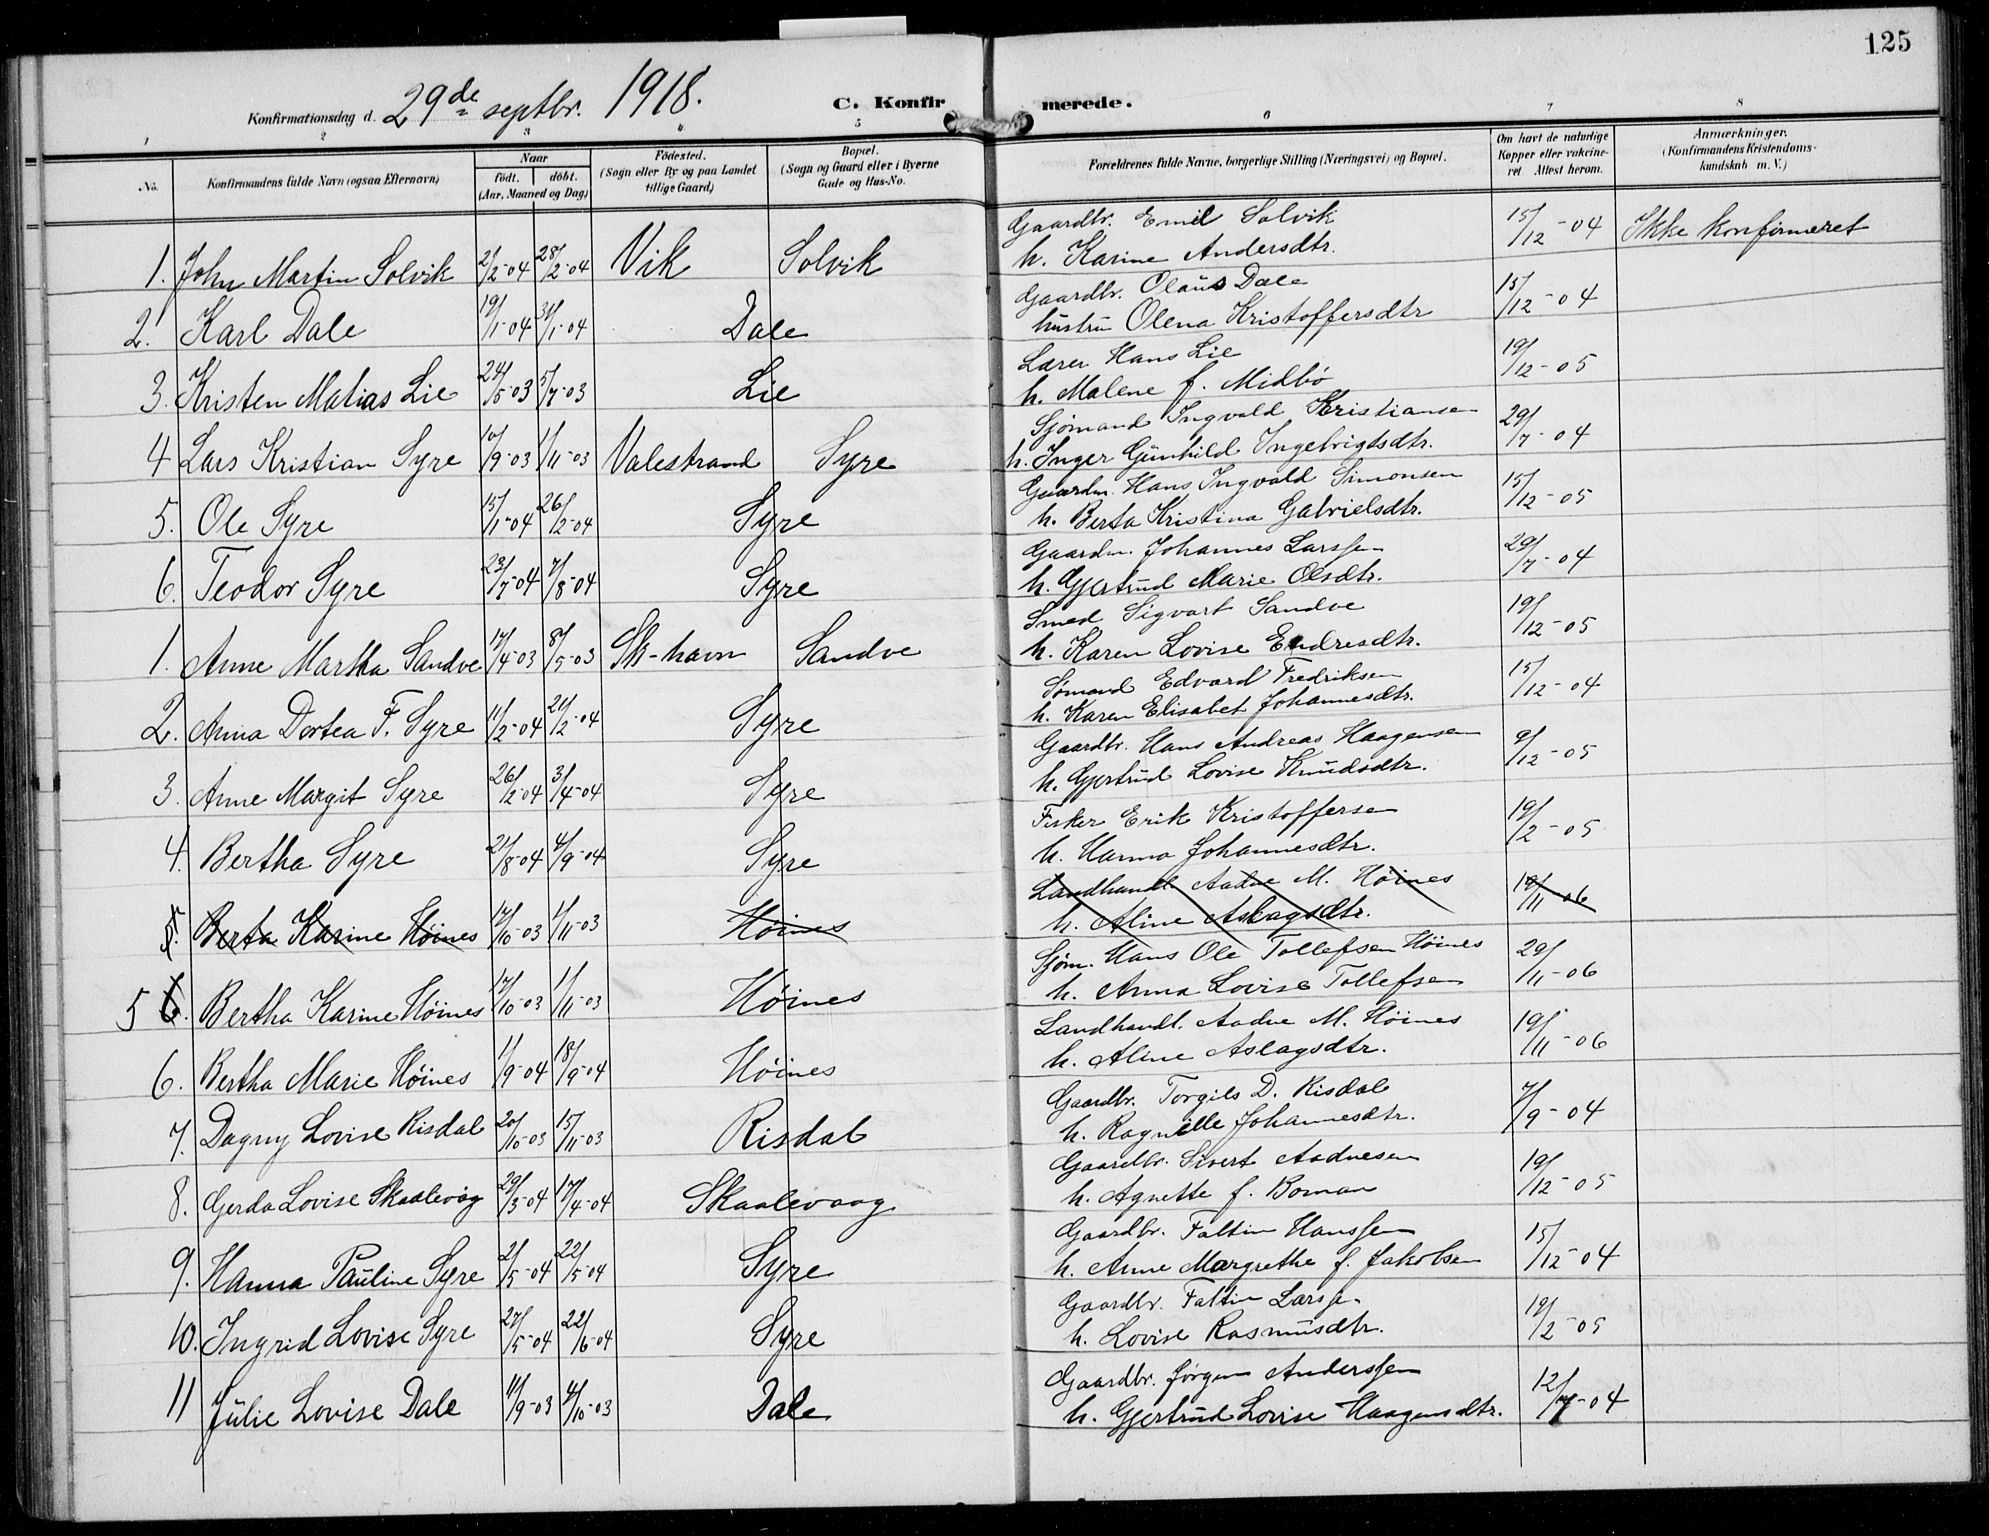 125
Konfirmationsdag d. 29de septbr. 1918. C. Konfirmerede.
1 2 3 4 5 6 7 8
No. Konfirmandens fulde Navn (ogsaa Efternavn) Naar födt. döbt. (Aar, Maaned og Dag) Födested. (Sogn eller By og paa Landet tillige Gaard) Bopæl. (Sogn og Gaard eller i Byerne Gade og Hus-No. Forældrenes fulde Navne, borgerlige Stilling (Næringsvei) og Bopæl. Om havt de naturlige Kopper eller vakcineret Attest herom. Anmærkninger. (Konfirmandens Kristendomskundskab m. V.)
1. John Martin Solvik 2/2-04 28/2-04 Vik Solvik Gaardbr. Emil Solvik 15/12-04 Ikke konfirmeret
h. Karine Andersdtr.
2. Karl Dale 19/1-04 31/1-04 Dale Gaardbr. Olaus Dale 15/12-04
hustru Olena Kristoffersdtr
3. Kristen Matias Lie 24/5-03 5/7-03 Lie Lærer Hans Lie 19/12-05
h. Malene f. Midbö
4 Lars Kristian Syre 10/9-03 1/11-03 Valestrand Syre Sjömand Ingvald Kristiansen 29/7-04
h. Inger Gunhild Ingebrigtsdtr.
5. Ole Syre 15/1-04 26/2-04 Syre Gaardm. Hans Ingvald Simonsen 15/12-05
h. Berta Kristina Gabrielsdtr.
6. Teodor Syre 23/7-04 7/8-04 Syre Gaardm. Johannes Larssen 29/7-04
h. Gjertrud Marie Olsdtr.
1. Anne Martha Sandve 17/4-03 8/5-03 Sk-havn Sandve Smed Sigvart Sandve 19/12-05
h. Karen Lovise Endresdtr.
2. Anna Dortea F. Syre 11/2-04 21/2-04 Syre Sømand Edvard Fredriksen 15/12-04
h. Karen Elisabet Johannesdtr.
3. Anne Margit Syre 26/2-04 3/4-04 Syre Gaardbr. Hans Andreas Haagensen 9/12-05
h. Gjertrud Lovise Knudsdtr.
4. Bertha Syre 21/8-04 4/9-04 Syre Fisker Erik Kristoffersen 19/2-05
h. Hanna Johannesdtr.
5. Berta Karine Höines 17/10-03 1/11-03 Höines Landhandl Aadne M. Höines 19/11-06
h. Aline Aslagsdtr.
5 6. Bertha Karine Höines 17/10-03 1/11-03 Höines Sjöm. Hans Ole Tollefsen Höines 29/11-06
h. Anna Lovise Tollefsen
6. Bertha Marie Höines 1/9-04 18/9-04 Höines Landhandl. Aadne M. Höines 19/11-06
h. Aline Aslagsdtr.
7. Dagny Lovise Risdal 20/10-03 15/11-03 Risdal Gaardbr. Torgils D. Risdal 7/9-04
h. Ragnille Johannesdtr.
8. Gerda Lovise Skaalevåg 29/3-04 17/4-04 Skaalevaag Gaardbr. Sivert Aadnesen 19/12-05
h. Agnette f. Boman
9. Hanna Pauline Syre 2/5-04 22/5-04 Syre Gaardbr. Faltin Hanssen 15/12-04
h. Anne Margrethe f. Jakobsen
10. Ingrid Lovise Syre 27/5-04 22/6-04 Syre Gaardbr. Faltin Larssen 19/2-05
h. Lovise Rasmusdtr.
11 Julie Lovise Dale 11/9-03 4/10-03 Dale Gaardbr. Jörgen Anderssen 12/7-04
h. Gjertrud Lovise Haagensdtr.